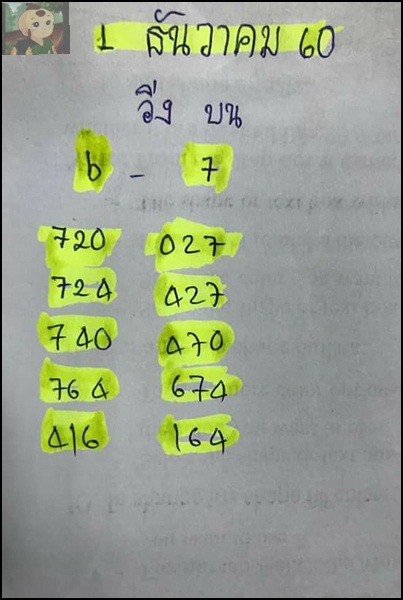 1 ธันวาคม 60
วิ่ง บน
6 - 7
720 027
724 427
740 470
764 674
416 164